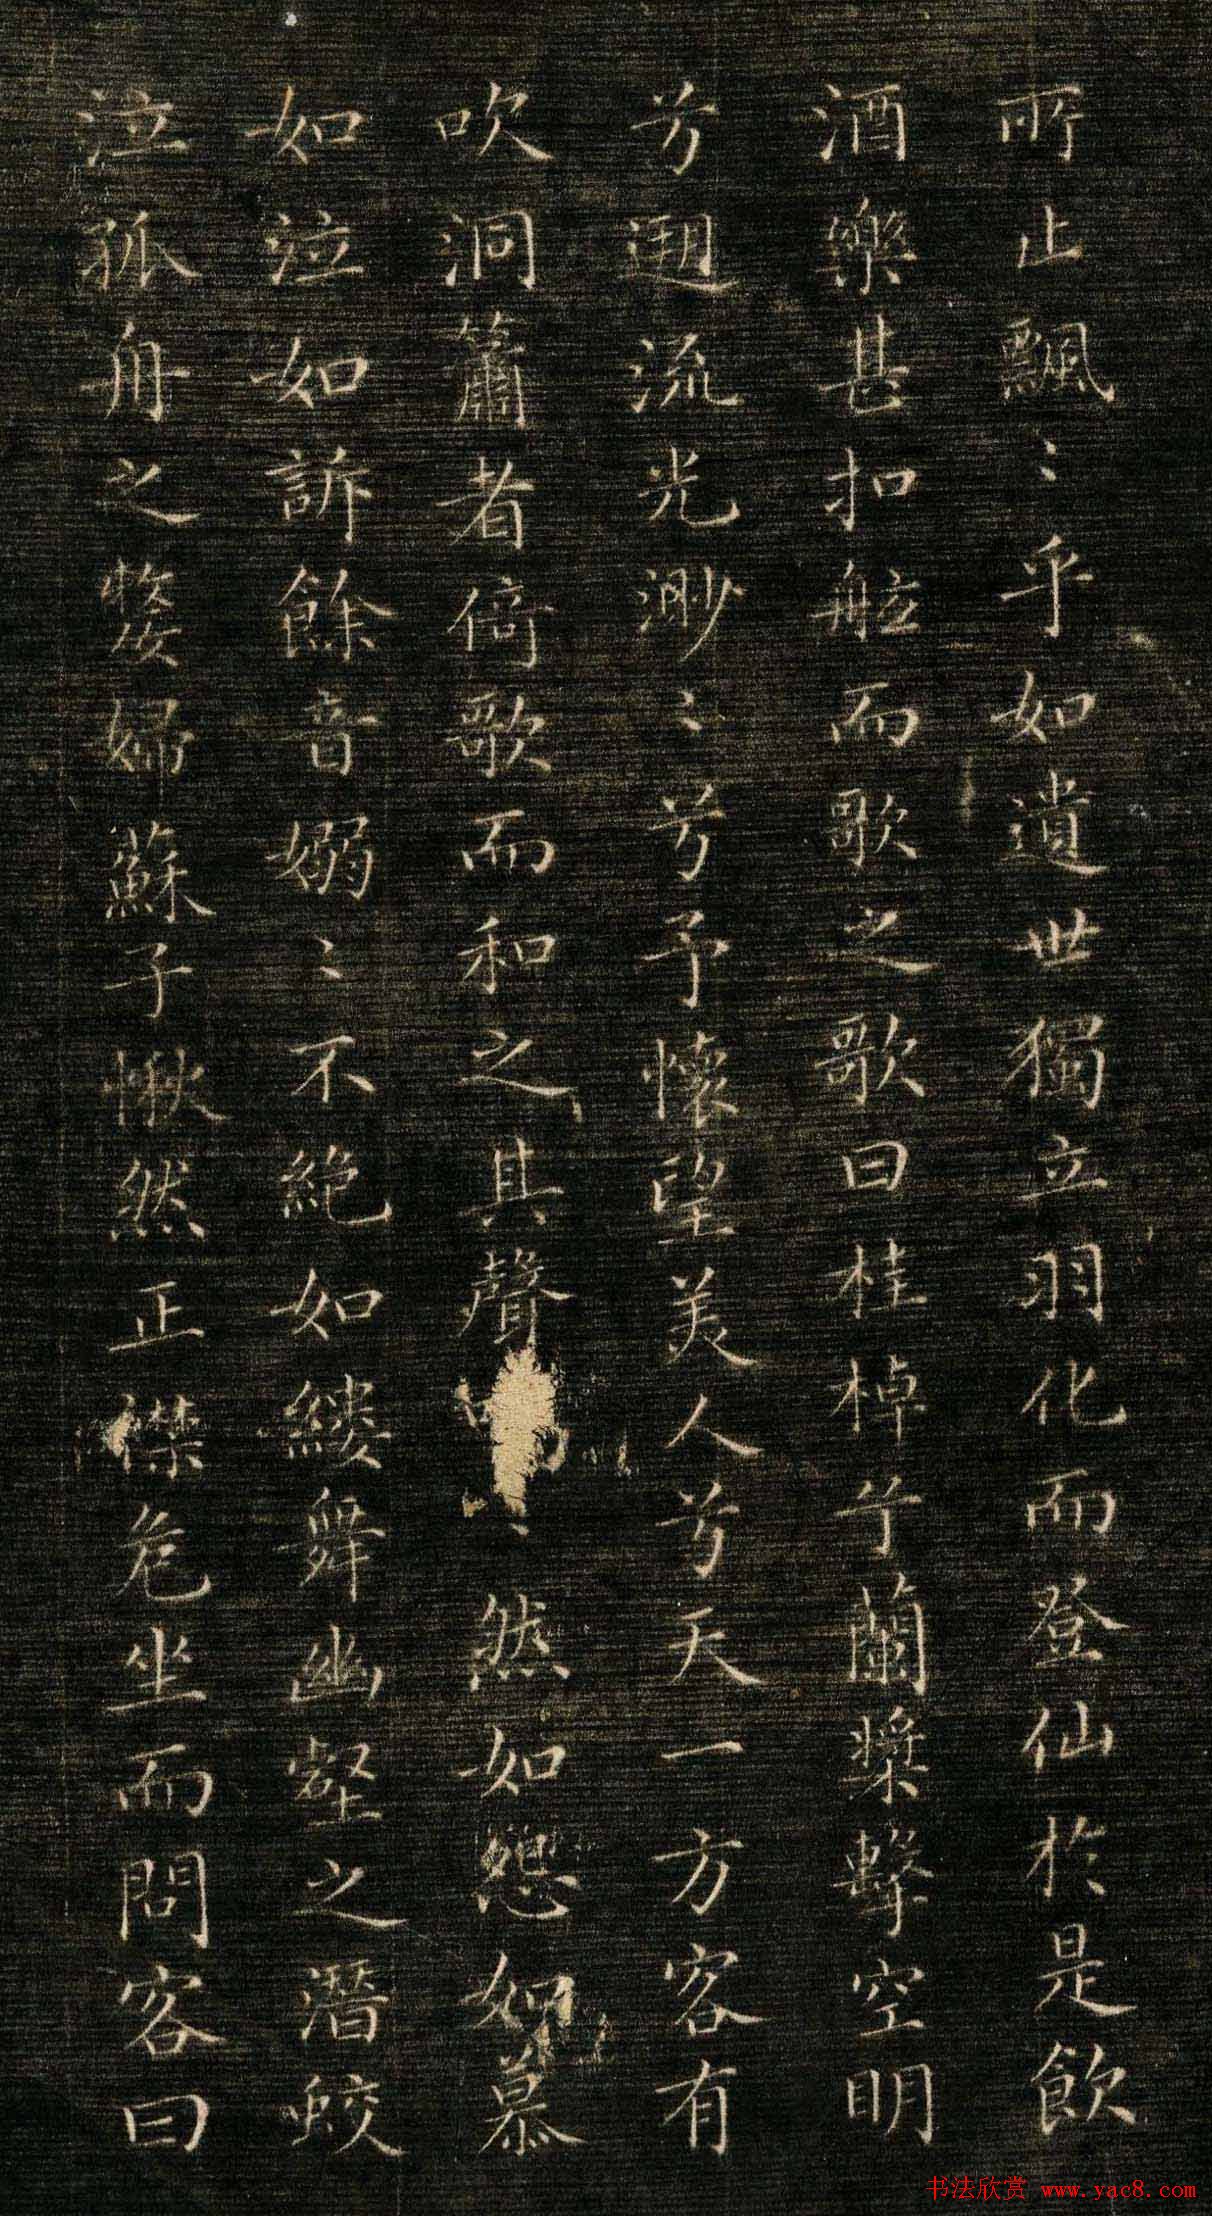 所止飄〻乎如遺世獨立羽化而登仙於是飲
酒樂甚扣舷而歌之歌曰桂棹兮蘭槳擊空明
兮遡流光渺〻兮予懷望美人兮天一方客有
吹洞簫者倚歌而和之其聲〻然如怨如慕
如泣如訴餘音嫋〻不絕如縷舞幽壑之潛蛟
泣孤舟之嫠婦蘇子愀然正襟危坐而問客曰
书法欣赏 www.yac8.com